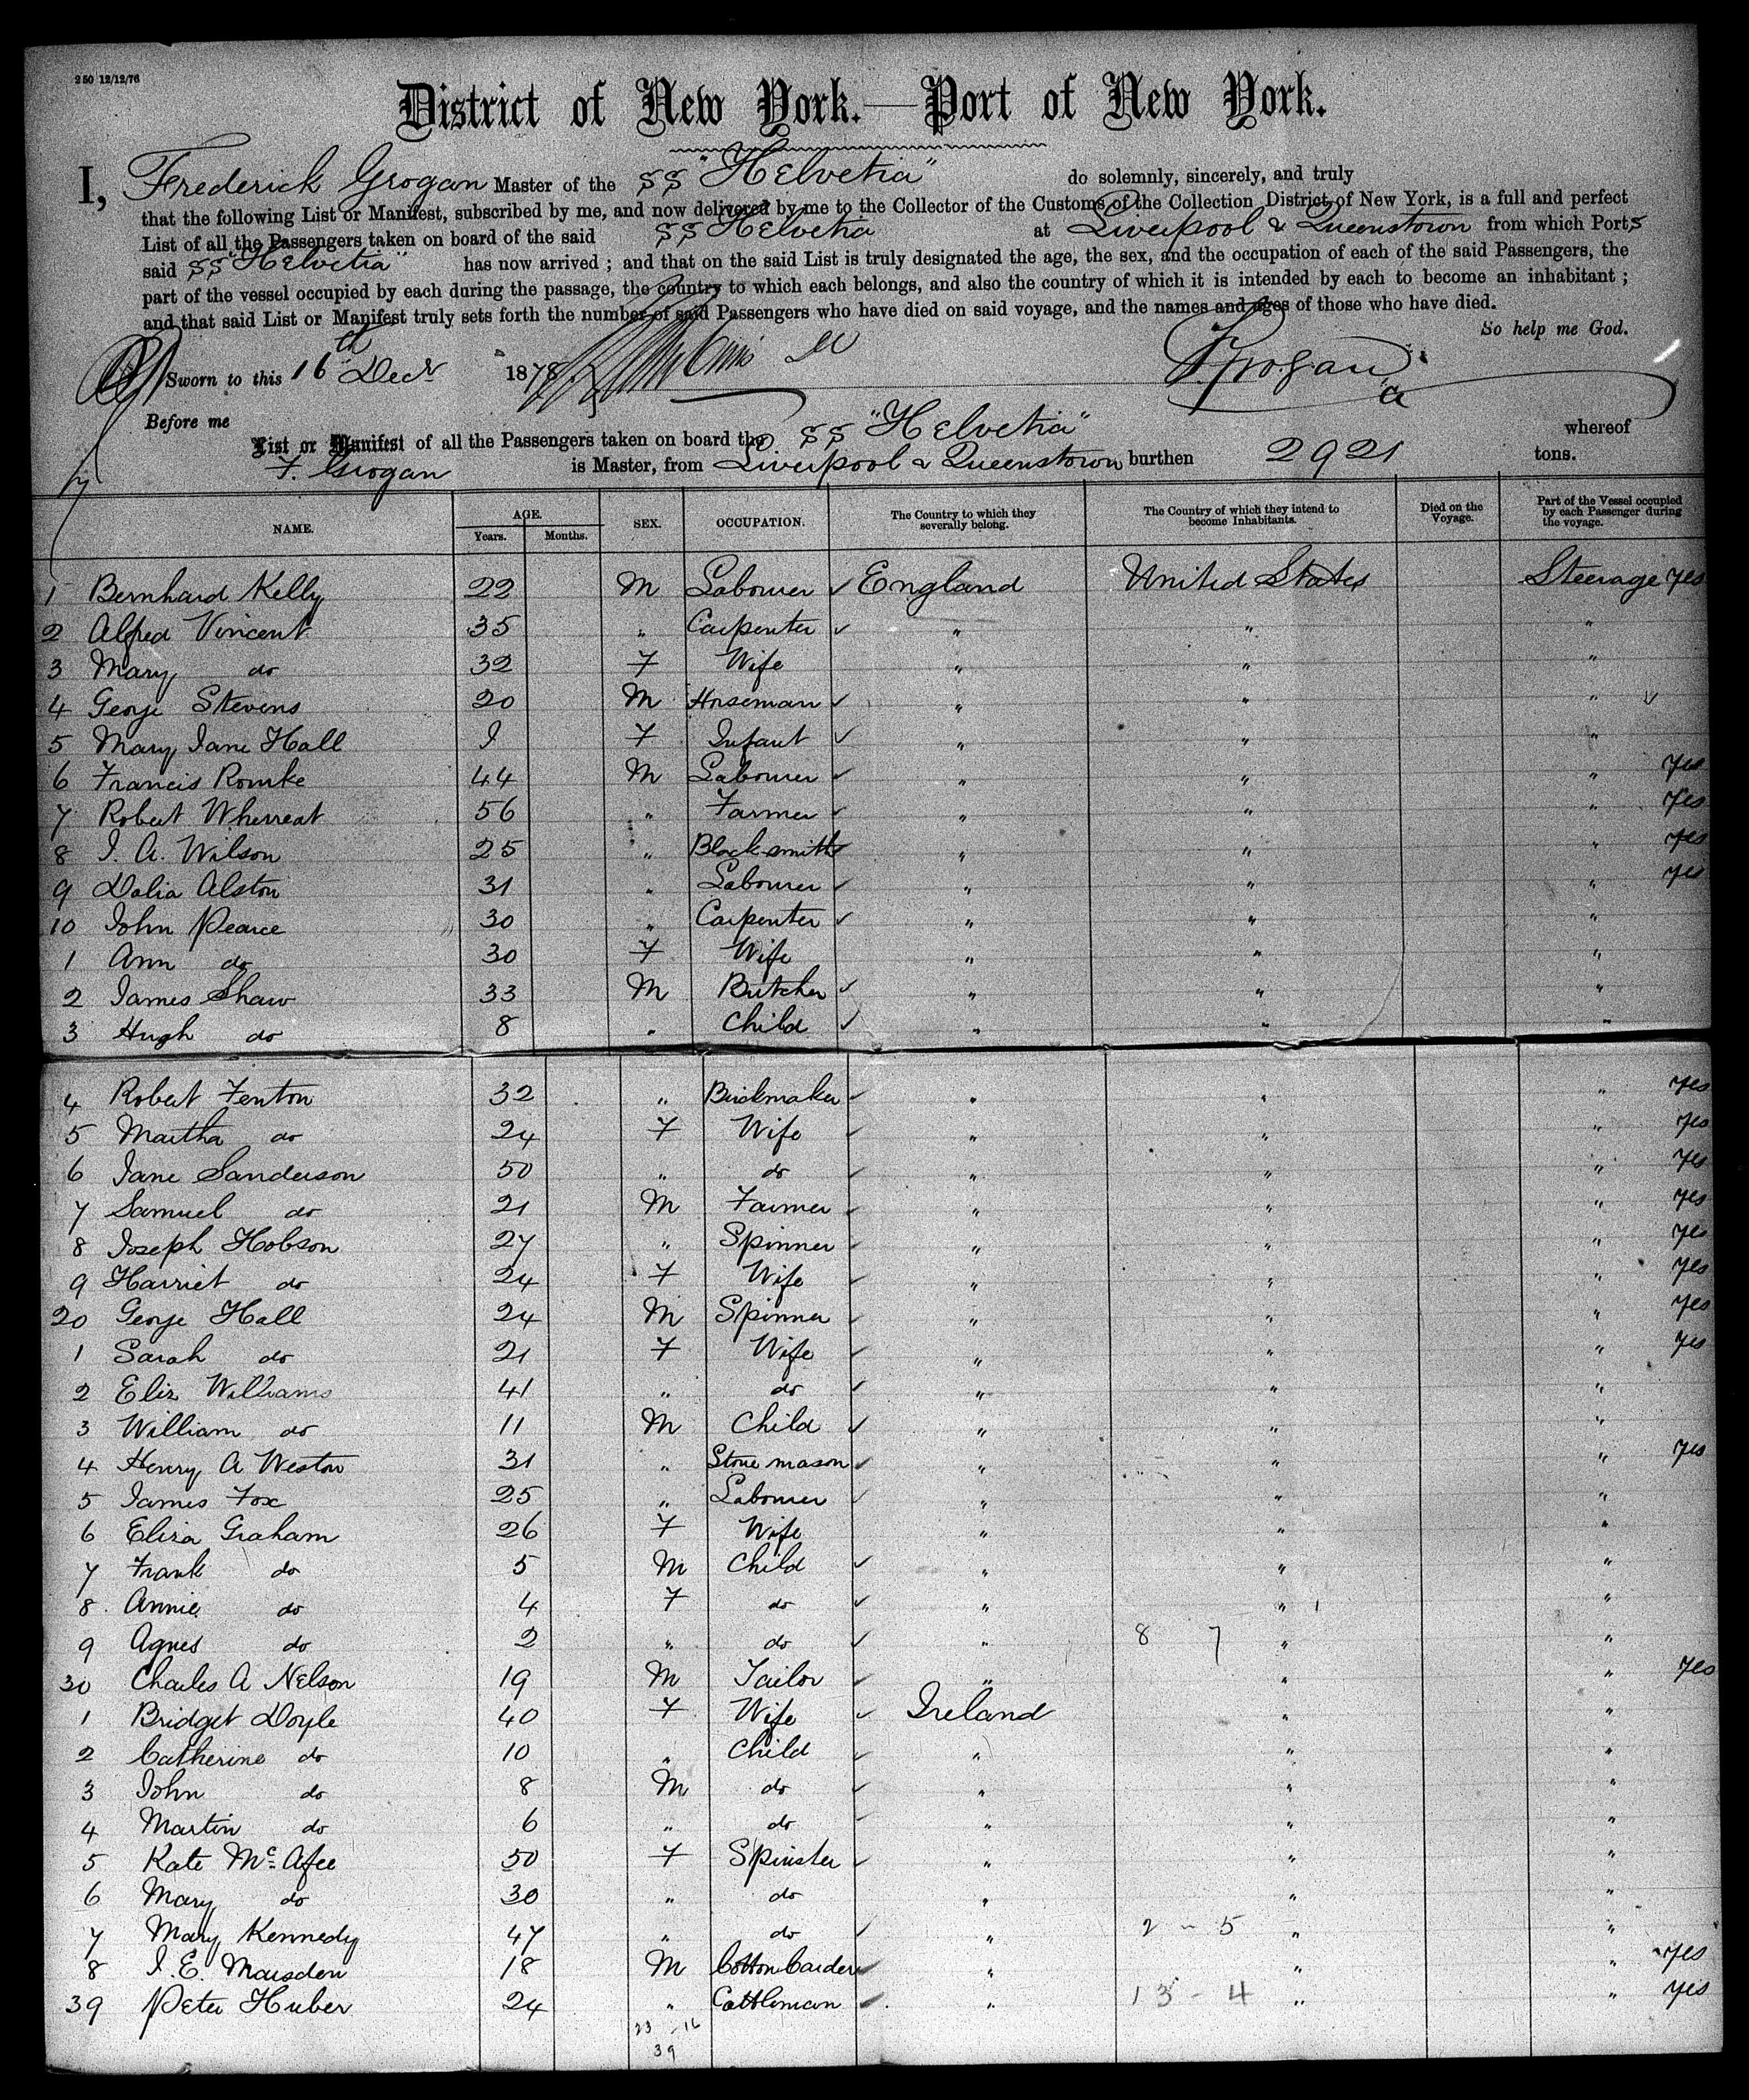 250 12/12/76
District of New York.—Port of New York.
I, Frederick Grogan Master of the SS "Helvetia" do solemnly, sincerely, and truly
that the following List or Manifest, subscribed by me, and now delivered by me to the Collector of the Customs of the Collection District of New York, is a full and perfect
List of all the Passengers taken on board of the said SS Helvetia at Liverpool & Queenstown from which Ports
said SS "Helvetia" has now arrived ; and that on the said List is truly designated the age, the sex, and the occupation of each of the said Passengers, the
part of the vessel occupied by each during the passage, the country to which each belongs, and also the country of which it is intended by each to become an inhabitant ;
and that said List or Manifest truly sets forth the number of said Passengers who have died on said voyage, and the names and ages of those who have died.
So help me God.
Sworn to this 16th Decr 1878 F Grogan
Before me
List or Manifest of all the Passengers taken on board the SS "Helvetia" whereof
F. Grogan is Master, from Liverpool & Queenstown burthen 2921 tons.
NAME. AGE. Years. Months. SEX. OCCUPATION. The Country to which they severally belong. The Country of which they intend to become Inhabitants. Died on the Voyage. Part of the Vessel occupied by each Passenger during the voyage.
1 Bernhard Kelly 22 M Labourer ✓ England United States Steerage yes
2 Alfred Vincent 35 " Carpenter ✓ " " "
3 Mary do 32 F Wife " " "
4 George Stevens 20 M Horseman ✓ " " " ✓
5 Mary Jane Hall 1 F Infant ✓ " " "
6 Francis Romke 44 M Labourer ✓ " " " yes
7 Robert Wherreat 56 " Farmer ✓ " " " yes
8 J. A. Wilson 25 " Blacksmith ✓ " " " yes
9 Dalia Alston 31 " Labourer ✓ " " " yes
10 John Pearce 30 " Carpenter ✓ " " "
1 Ann do 30 F Wife " " "
2 James Shaw 33 M Butcher ✓ " " "
3 Hugh do 8 " Child ✓ " " "
4 Robert Fenton 32 " Brickmaker ✓ " " " yes
5 Martha do 24 F Wife ✓ " " " yes
6 Jane Sanderson 50 " do ✓ " " " yes
7 Samuel do 21 M Farmer ✓ " " " yes
8 Joseph Hobson 27 " Spinner ✓ " " " yes
9 Harriet do 24 F Wife ✓ " " " yes
20 George Hall 24 M Spinner ✓ " " " yes
1 Sarah do 21 F Wife ✓ " " " yes
2 Eliz Williams 41 " do ✓ " " "
3 William do 11 M Child ✓ " " "
4 Henry A Weston 31 " Stone mason ✓ " " " yes
5 James Fox 25 " Labourer ✓ " " "
6 Eliza Graham 26 F Wife " " "
7 Frank do 5 M Child ✓ " " "
8 Annie do 4 F do ✓ " " "
9 Agnes do 2 " do ✓ " 8 7 " "
30 Charles A Nelson 19 M Tailor ✓ " " " yes
1 Bridget Doyle 40 F Wife ✓ Ireland " "
2 Catherine do 10 " Child ✓ " " "
3 John do 8 M do ✓ " " "
4 Martin do 6 " do ✓ " " "
5 Kate McAfee 50 F Spinster ✓ " " "
6 Mary do 30 " do " " "
7 Mary Kennedy 47 " do ✓ " 2 - 5 " "
8 J. E. Marsden 18 M Cotton Carder ✓ " " " yes
39 Peter Huber 24 " Cattleman ✓ " 13 - 4 " " yes
23 - 16
39